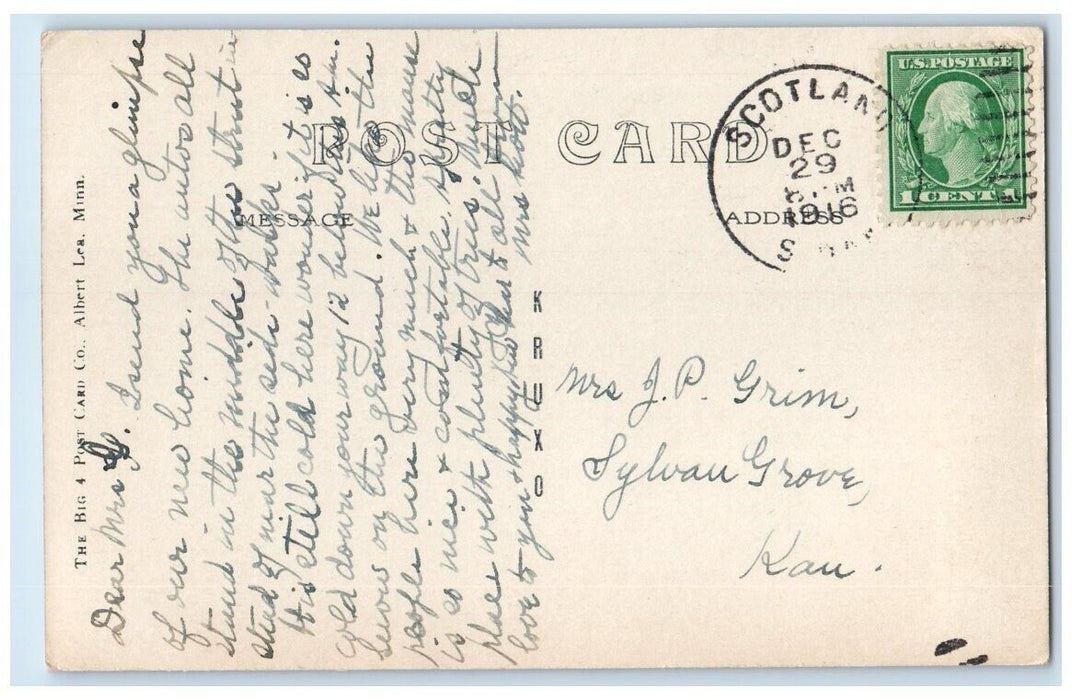 POST CARD
MESSAGE
ADDRESS
THE BIG 4 POST CARD CO., Albert Lea, Minn.
KRUXO
U.S. POSTAGE
1 CENT 1
SCOTLAND
DEC
29
M
1916
S
Dear Mrs G. I send you a glimpse
of our new home. The autos all
stand in the middle of the street in
stead of near the side-walks.
It is still cold here wonder if it is as
cold down your way 12 below this a.m.
Snow on the ground. We like the
people here very much & the house
is so nice & comfortable. pretty
place with plenty of trees, much
love to you Happy New Year to all from
Mrs Kott.
Mrs J. P. Grim,
Sylvan Grove,
Kan.